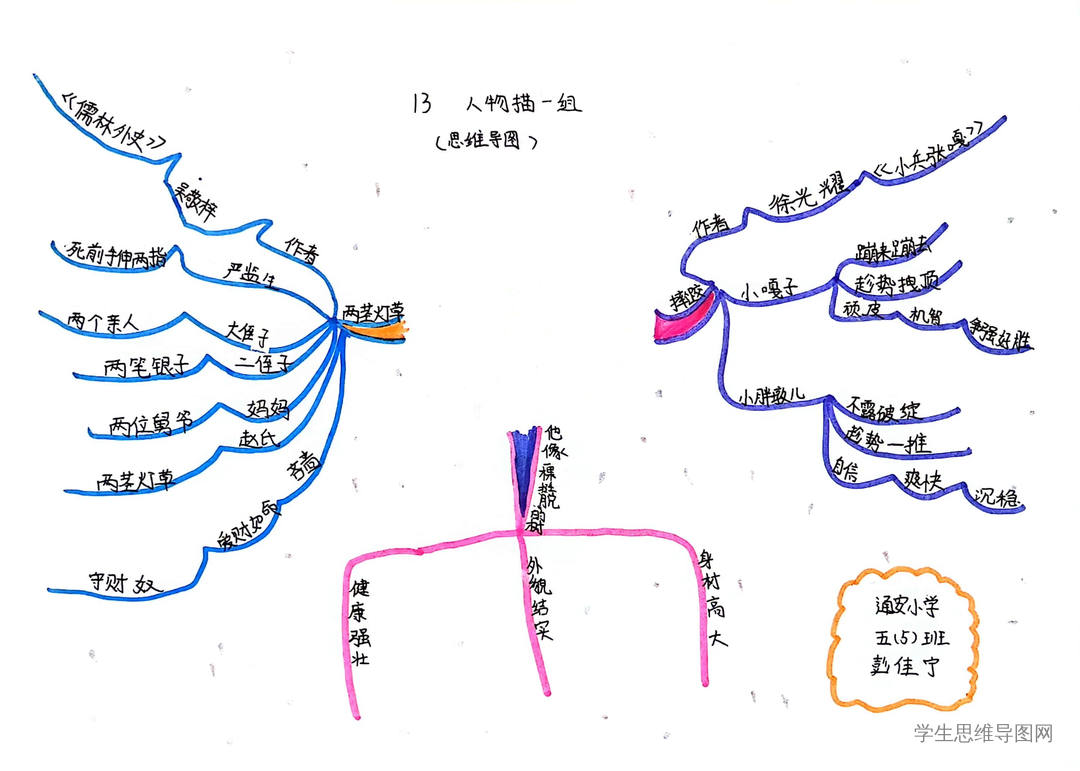 13 人物描一组
(思维导图)
《儒林外史》
吴敬梓
作者
死前手伸两指
严监生
两个亲人
大侄子
两笔银子
二侄子
两位舅爷
妈妈
两茎灯草
赵氏
守财奴
爱财如命
吝啬
两茎灯草
摔跤
作者
徐光耀
《小兵张嘎》
小嘎子
蹦来蹦去
趁势拽顶
顽皮
机智
争强好胜
小胖墩儿
不露破绽
趁势一推
自信
爽快
沉稳
他像
外貌结实
健康强壮
身材高大
通安小学
五(5)班
彭佳宁
学生思维导图网